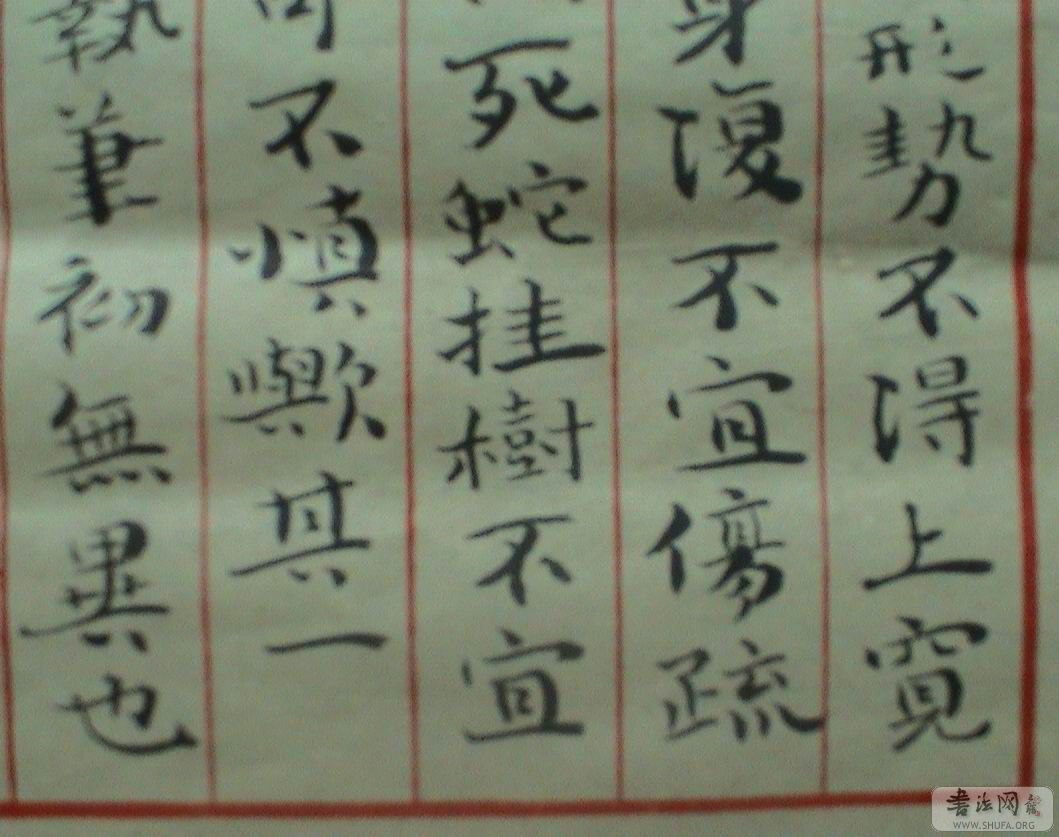 形勢不得上寬
身復不宜傷疏
死蛇挂樹不宜
可不慎歟其一
執筆初無異也
書法网
WWW.SHUFA.ORG